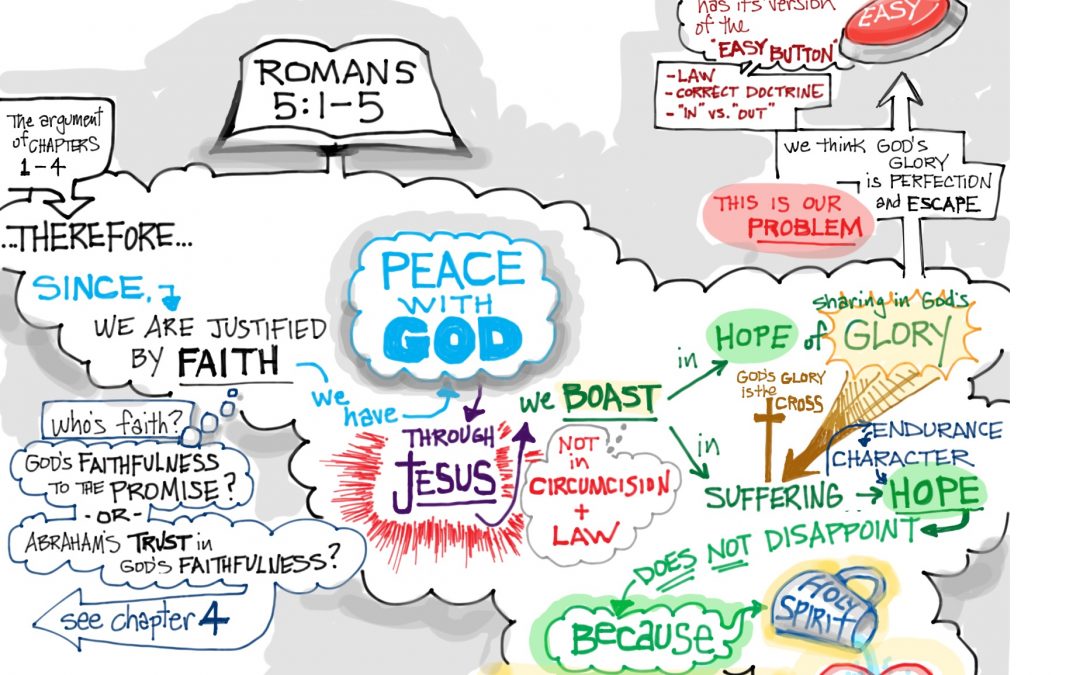 ROMANS
5:1-5
The argument
of CHAPTERS
1-4
...THEREFORE...
SINCE,
WE ARE JUSTIFIED
BY FAITH
who's faith?
GOD'S FAITHFULNESS
TO THE PROMISE?
-OR-
ABRAHAM'S TRUST in
GOD'S FAITHFULNESS?
see chapter 4
we
have
PEACE
WITH
GOD
THROUGH
JESUS
we BOAST
NOT
in
CIRCUMCISION
+
LAW
in
HOPE of
sharing in God's
GLORY
in
SUFFERING
GOD'S GLORY
is the
CROSS
ENDURANCE
CHARACTER
HOPE
DOES NOT DISAPPOINT
Because
HOLY
SPIRIT
has its version
of the
"EASY BUTTON"
EASY
-LAW
-CORRECT DOCTRINE
-"IN" VS. "OUT"
we think GOD'S
GLORY
is PERFECTION
and ESCAPE
THIS IS OUR
PROBLEM